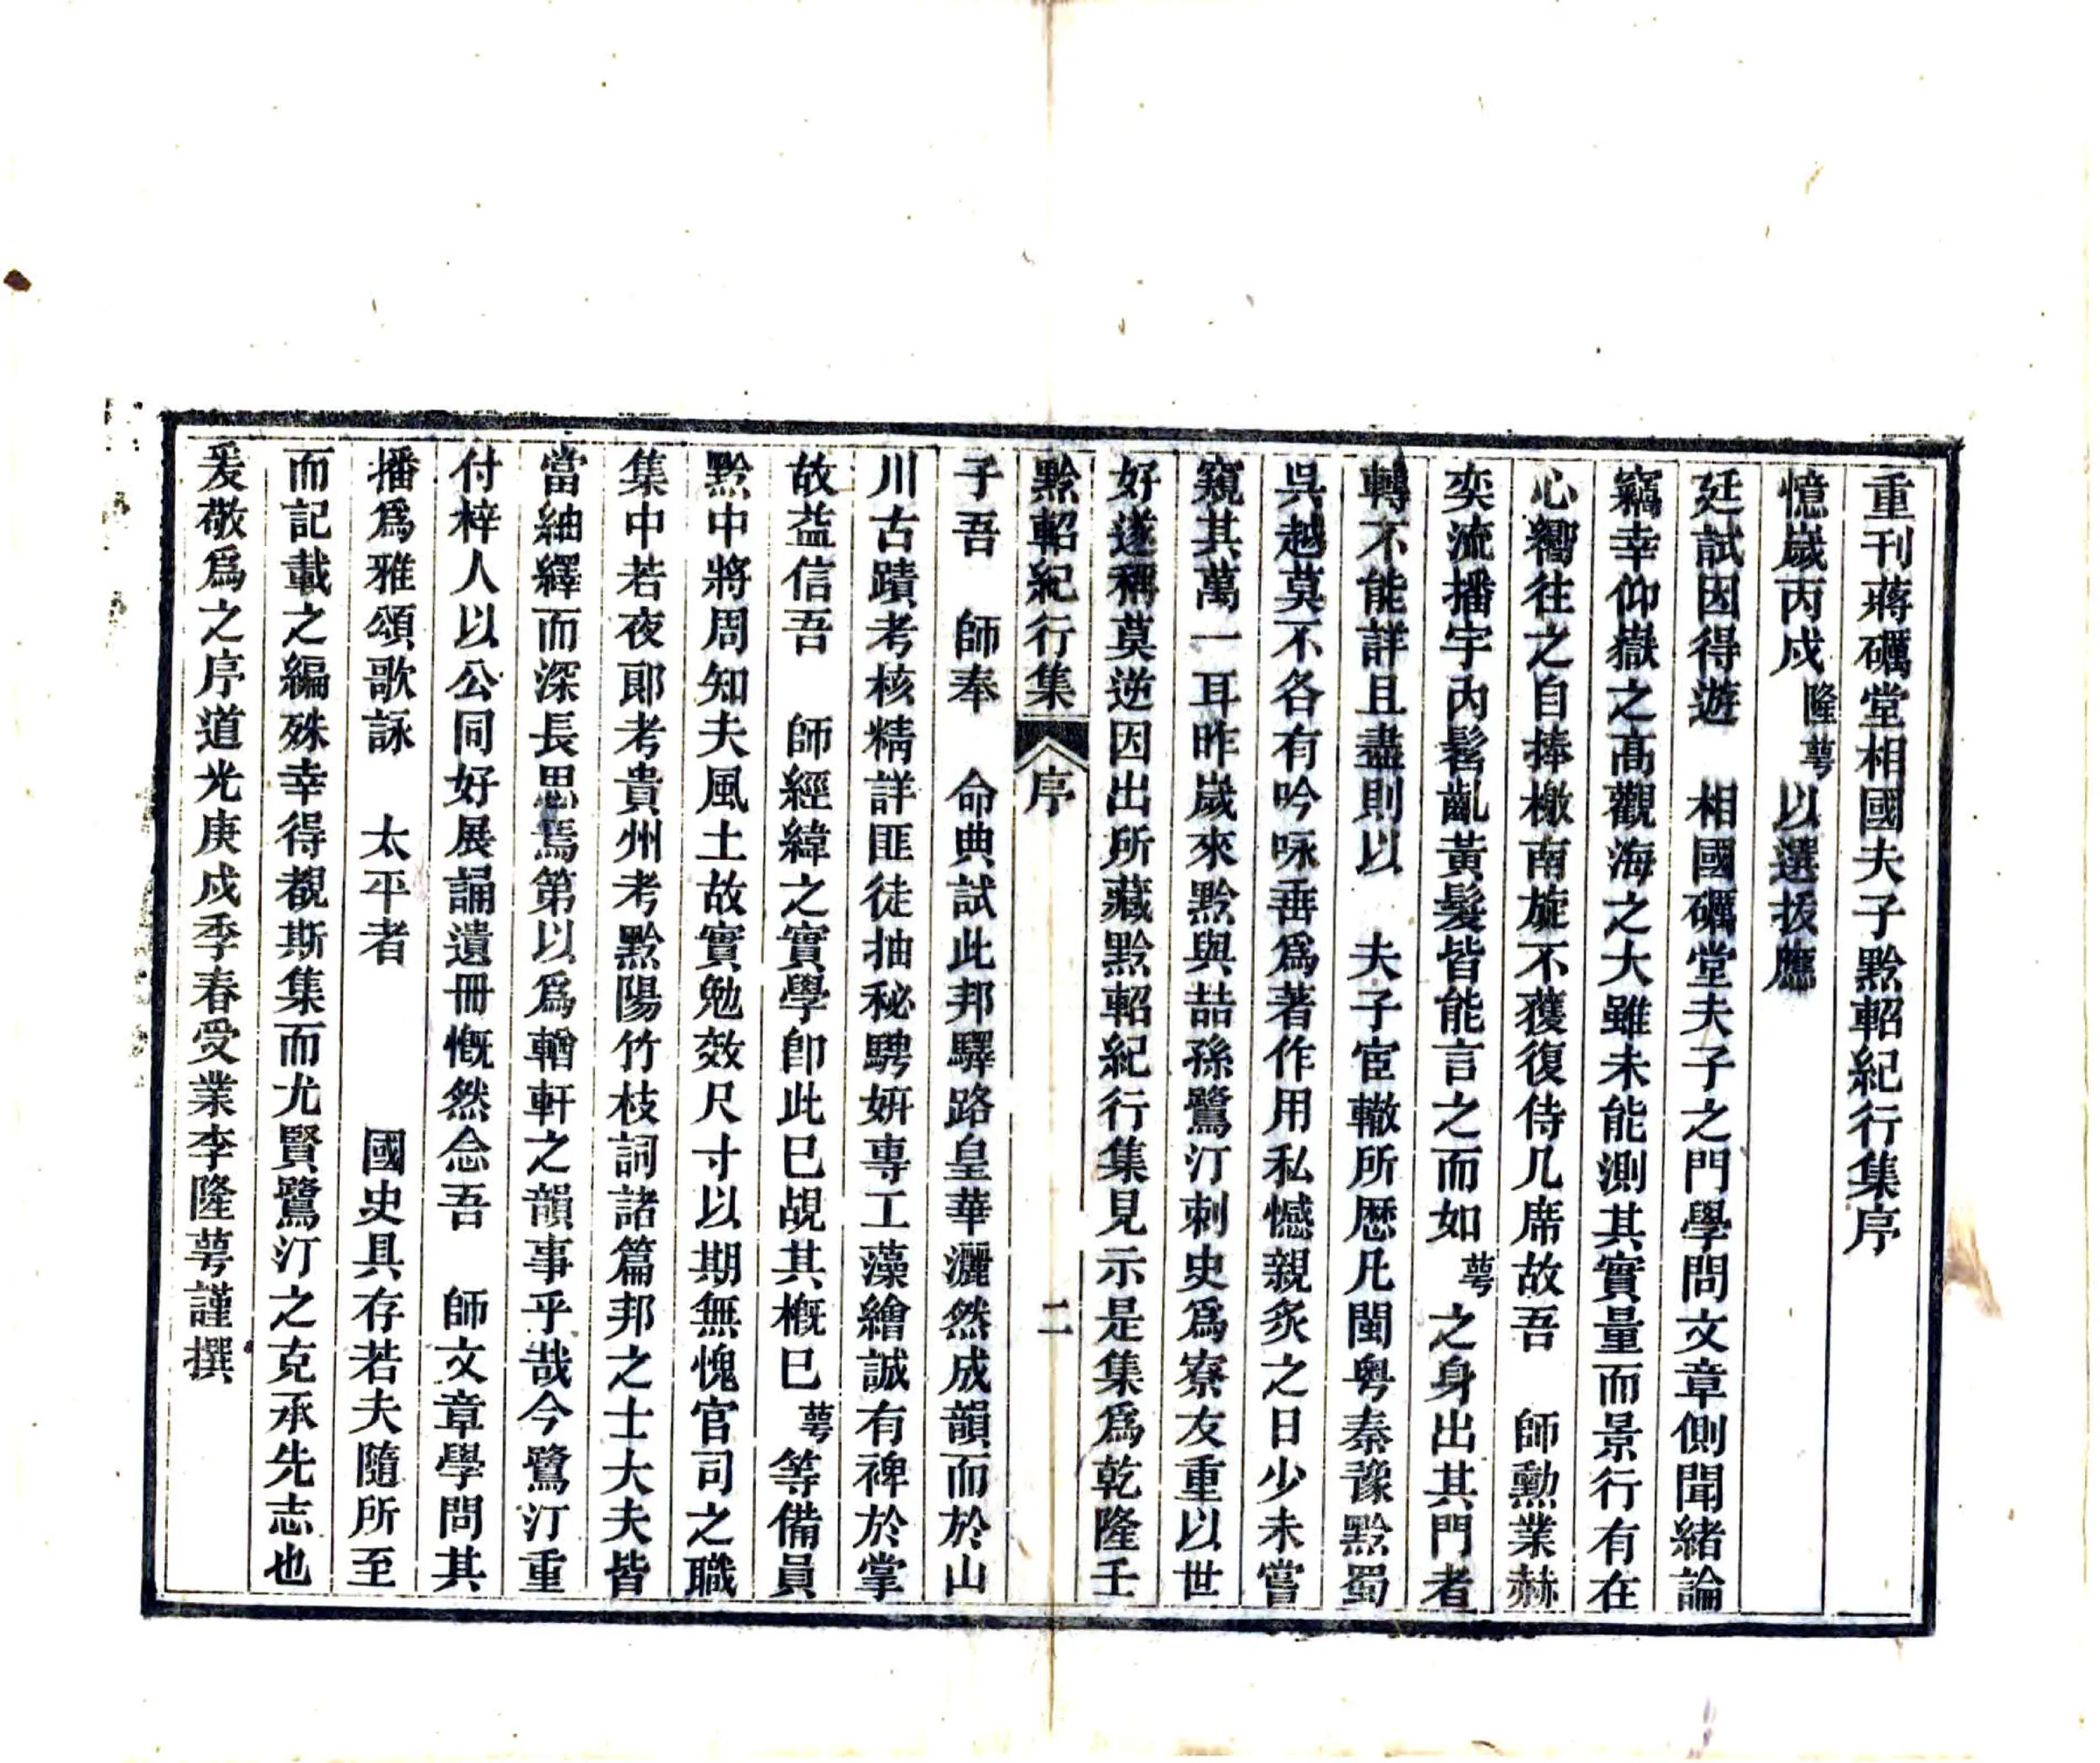 重刊蔣礪堂相國夫子黔軺紀行集序
憶歲丙戌隆萼以選拔應
廷試因得遊　相國礪堂夫子之門學問文章側聞緒論
竊幸仰嶽之高觀海之大雖未能測其實量而景行有在
心嚮往之自捧檄南旋不獲復侍几席故吾　師勳業赫
奕流播宇內髫齔黃髮皆能言之而如萼之身出其門者
轉不能詳且盡則以　夫子宦轍所歷凡閩粵秦豫黔蜀
吳越莫不各有吟咏垂爲著作用私憾親炙之日少未嘗
窺其萬一耳昨歲來黔與喆孫鷺汀刺史爲寮友重以世
好遂稱莫逆因出所藏黔軺紀行集見示是集爲乾隆壬
黔軺紀行集　序　二
子吾　師奉　命典試此邦驛路皇華灑然成韻而於山
川古蹟考核精詳匪徒抽秘騁妍專工藻繪誠有裨於掌
故益信吾　師經緯之實學卽此已覘其概巳萼等備員
黔中將周知夫風土故實勉效尺寸以期無愧官司之職
集中若夜郞考貴州考黔陽竹枝詞諸篇邦之士大夫皆
當紬繹而深長思焉第以爲輶軒之韻事乎哉今鷺汀重
付梓人以公同好展誦遺冊慨然念吾　師文章學問其
播爲雅頌歌詠　太平者　　　國史具存若夫隨所至
而記載之編殊幸得覩斯集而尤賢鷺汀之克承先志也
爰敬爲之序道光庚戌季春受業李隆萼謹撰